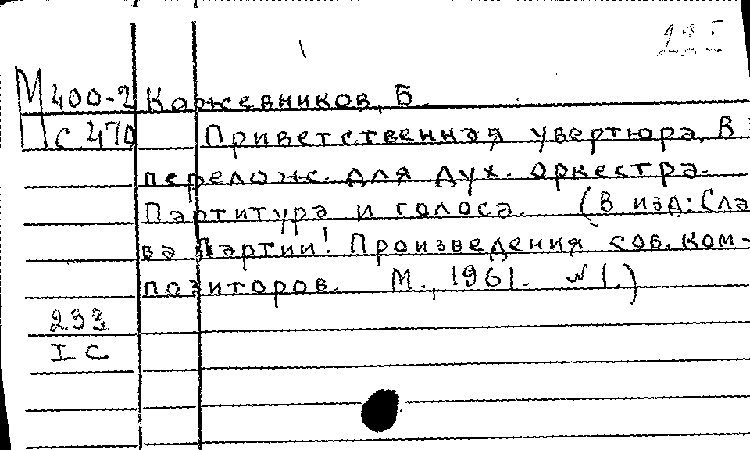 М 400-2 Кожевников, Б.
С 470 Приветственная увертюра. В
перелож. для дух. оркестра.
Партитура и голоса. (В изд: Сла
ва Партии! Произведения сов. ком-
позиторов. М., 1961. №1.)
233
I C